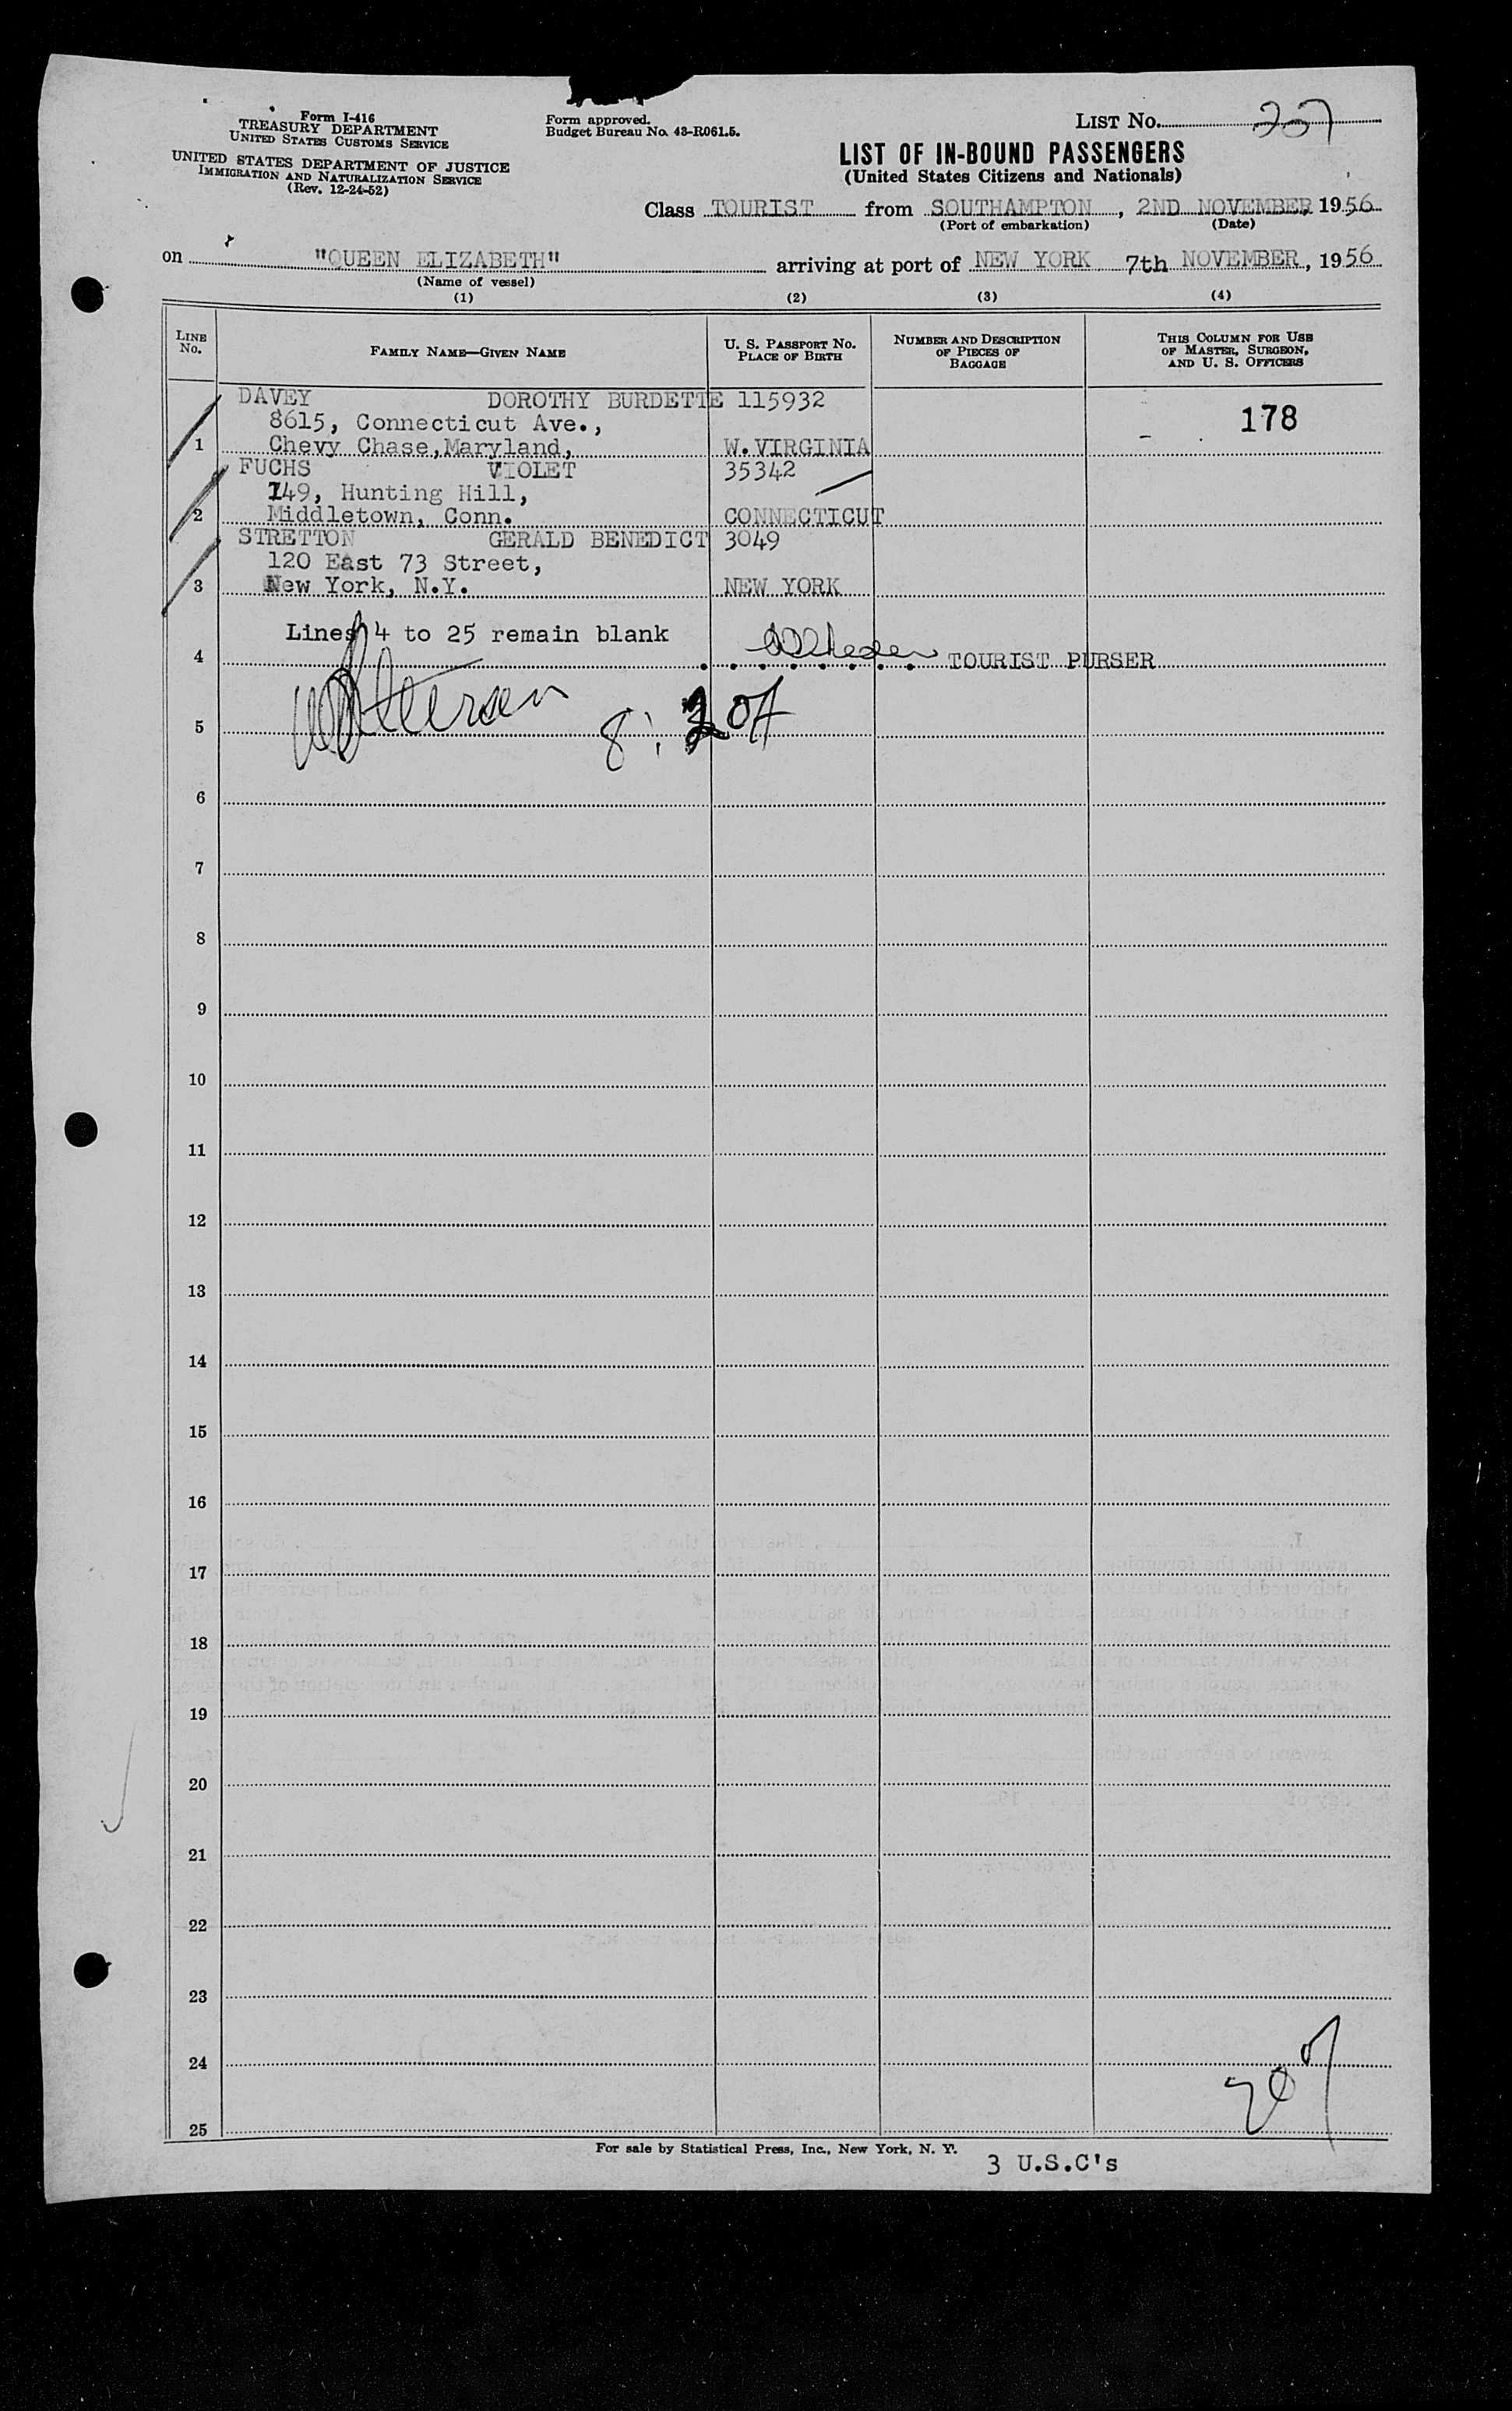 Form I-416
TREASURY DEPARTMENT
UNITED STATES CUSTOMS SERVICE
UNITED STATES DEPARTMENT OF JUSTICE
IMMIGRATION AND NATURALIZATION SERVICE
(Rev. 12-24-52)
Form approved.
Budget Bureau No. 43-R061.5.
LIST No.
LIST OF IN-BOUND PASSENGERS
(United States Citizens and Nationals)
Class TOURIST from SOUTHAMPTON, 2ND NOVEMBER, 1956
(Port of embarkation) (Date)
on "QUEEN ELIZABETH" arriving at port of NEW YORK 7th NOVEMBER, 1956
(Name of vessel)
(1) (2) (3) (4)
LINE No. FAMILY NAME—GIVEN NAME U. S. PASSPORT No. PLACE OF BIRTH NUMBER AND DESCRIPTION OF PIECES OF BAGGAGE THIS COLUMN FOR USE OF MASTER, SURGEON, AND U. S. OFFICERS
DAVEY DOROTHY BURDETTE 115932
8615, Connecticut Ave., 178
1 Chevy Chase,Maryland, W.VIRGINIA
FUCHS VIOLET 35342
149, Hunting Hill,
2 Middletown, Conn. CONNECTICUT
STRETTON GERALD BENEDICT 3049
120 East 73 Street,
3 New York, N.Y. NEW YORK
Lines 4 to 25 remain blank
4 TOURIST PURSER
5
6
7
8
9
10
11
12
13
14
15
16
17
18
19
20
21
22
23
24
25
For sale by Statistical Press, Inc., New York, N. Y.
3 U.S.C's